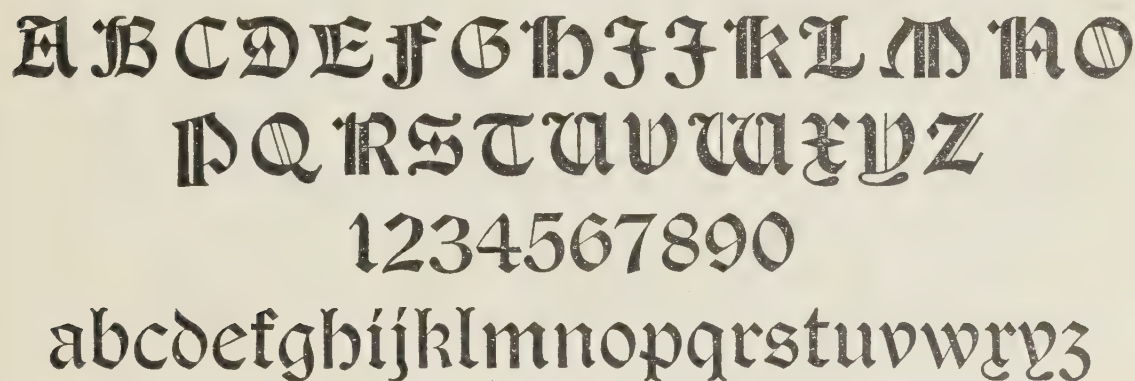 ABCDEFGHIJKLMNO
PQRSTUVWXYZ
1234567890
abcdefghijklmnopqrstuvwxyz